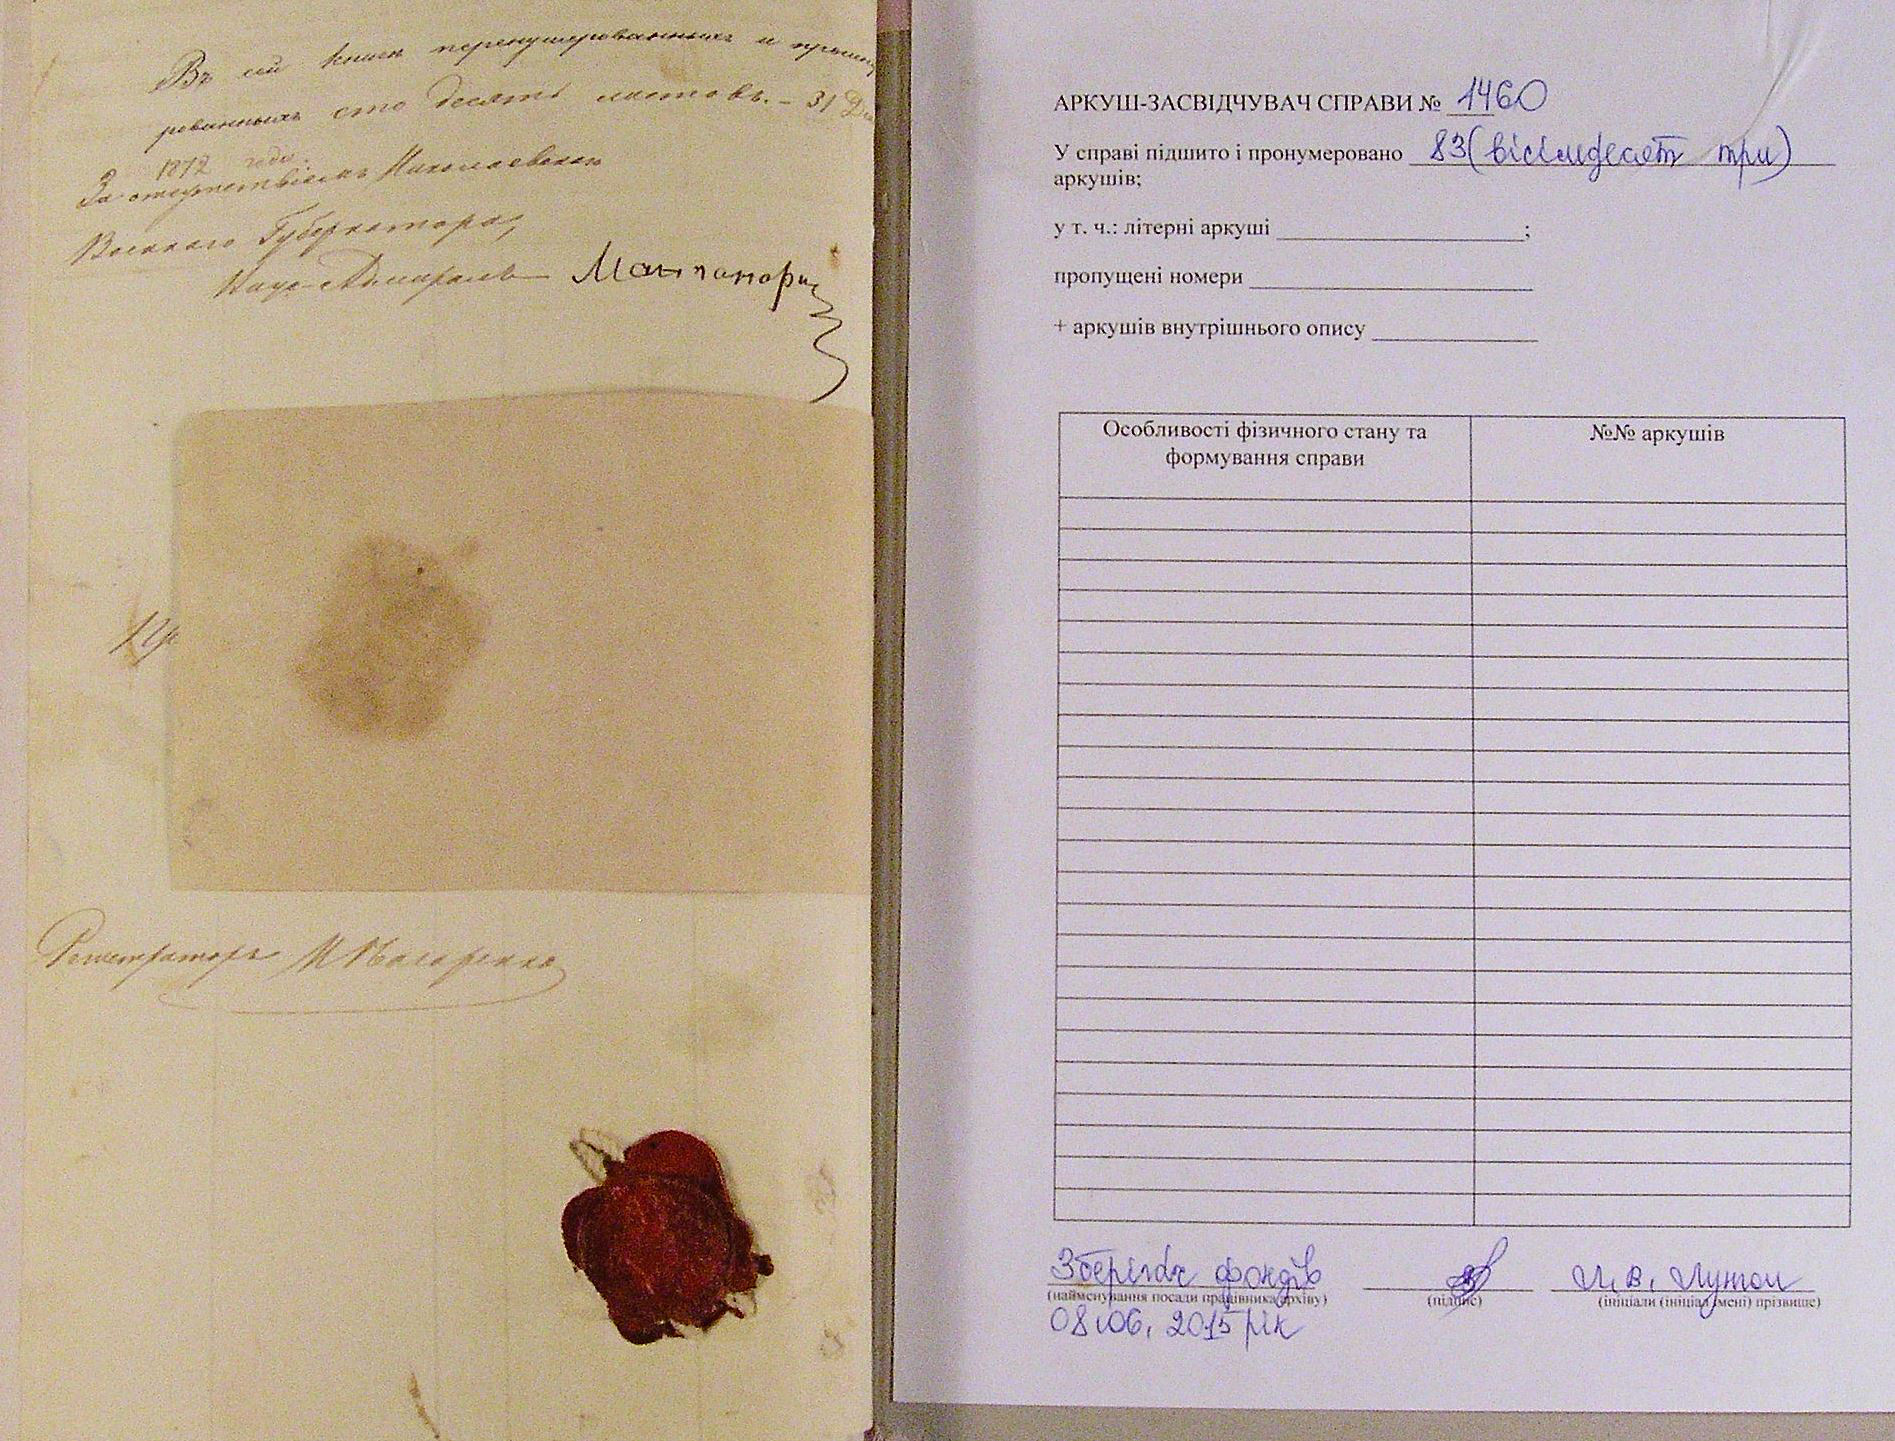 Въ сей книгѣ перенумерованныхъ и прошну
рованныхъ сто десять листовъ. – 31 Де
1872 года.
За отсутствіемъ Николаевскаго
Военнаго Губернатора,
Вице-Адмиралъ
Регистраторъ
АРКУШ-ЗАСВІДЧУВАЧ СПРАВИ № 1460
У справі підшито і пронумеровано 83 (вісімдесят три)
аркушів;
у т. ч.: літерні аркуші ;
пропущені номери
+ аркушів внутрішнього опису
Особливості фізичного стану та
формування справи
№№ аркушів
Зберігач фондів
(найменування посади працівника архіву)
(підпис)
(ініціали (ініціал імені) прізвище)
08.06. 2015 рік